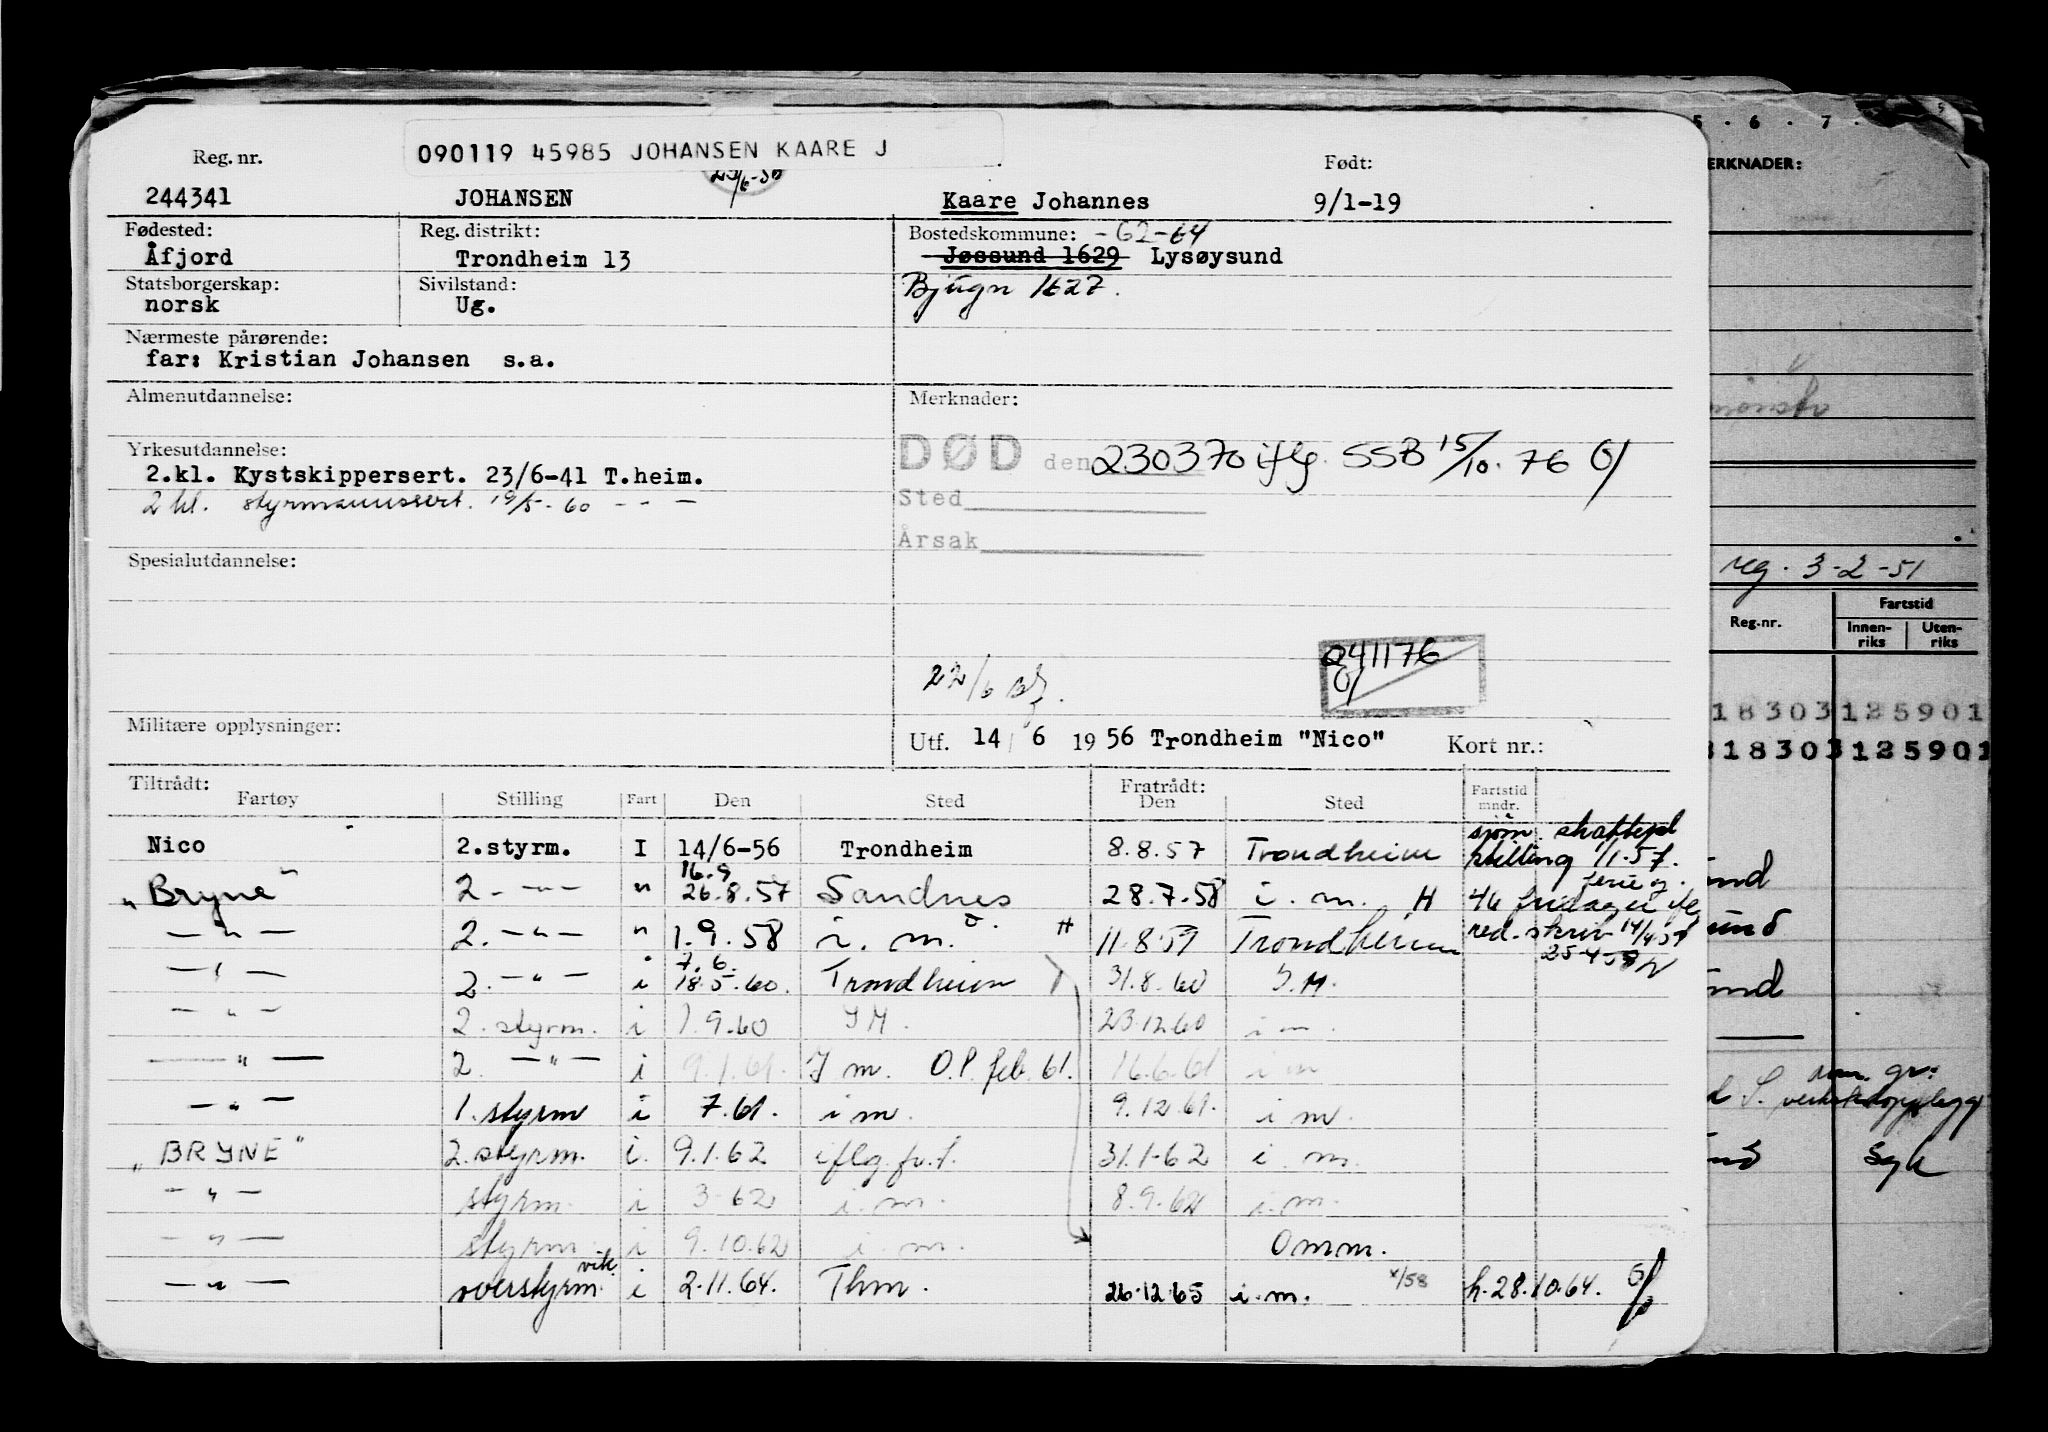 090119 45985 JOHANSEN KAARE J
Reg. nr. Født:
244341 JOHANSEN 23/6-56 Kaare Johannes 9/1-19
Fødested: Reg. distrikt: Bostedskommune: -62-64
Åfjord Trondheim 13 Jøssund 1629 Lysøysund
Statsborgerskap: Sivilstand: Bjugn 1627.
norsk Ug.
Nærmeste pårørende:
far: Kristian Johansen s.a.
Almenutdannelse: Merknader:
Yrkesutdannelse: DØD den 230370 iflg. SSB 15/10. 76
2.kl. Kystskippersert. 23/6-41 T.heim.
2 kl. styrmannssert. 19/5-60 - - - Sted
Årsak
Spesialutdannelse:
241176
22/6
Militære opplysninger:
Utf. 14/6 1956 Trondheim "Nico" Kort nr.:
Tiltrådt: Fratrådt: Fartstid
Fartøy Stilling Fart Den Sted Den Sted mndr.
sjøm. skattepl
Nico 2.styrm. I 14/6-56 Trondheim 8.8.57 Trondheim stilling 1/1-57.
16.9 ferie og
"Bryne" 2. -"- " 26.8.57 Sandnes 28.7.58 i. m. H 46 fridager iflg
-"- 2. -"- " 1.9.58 i. m. H 11.8.59 Trondheim red. skriv 14/4 59
7.6. 25-4-58
-"- 2. -"- i 18.5.60. Trondheim 31.8.60 I.M.
-"- 2. styrm. i 1.9.60 IM. 23.12.60 i m.
-"- 2. -"- i 9.1.61. I m. O.l. feb. 61. 16.6.61 i m
-"- 1. styrm i 7.61. i m. 9.12.61. i m.
"BRYNE" 2. styrm. i. 9.1.62 iflg. fv.f. 31.1-62 i. m.
-"- styrm. i 3-62 i. m. 8.9.62 i. m.
-"- styrm. i 9.10.62 i. m. Omm.
vik.
-"- overstyrm. i 2.11.64. Thm. 26.12.65 i. m. x/58 h. 28.10.64.
5 . 6 . 7 .
ERKNADER:
reg. 3-2-51
Fartstid
Reg.nr. Innen-riks Uten-riks
18303125901
318303125901
und
und
und
syk